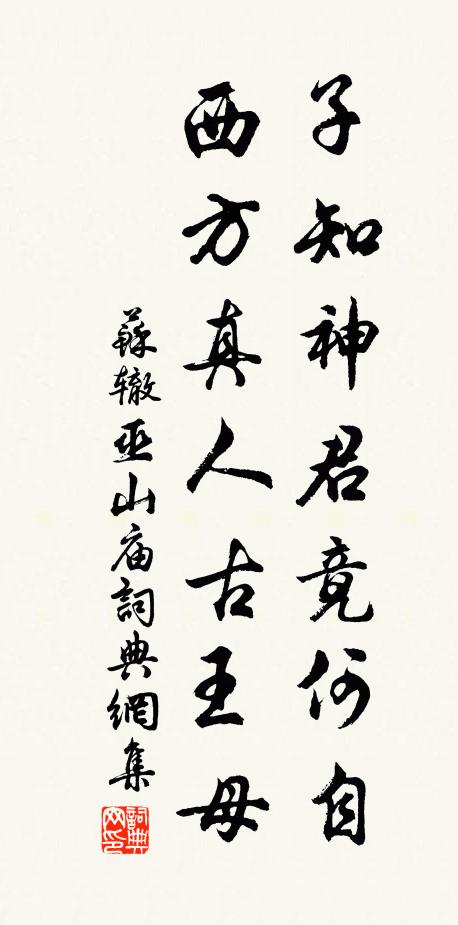 子知神君竟何自
西方真人古王母
蘇辙巫山庙詞典網集
詞典网印